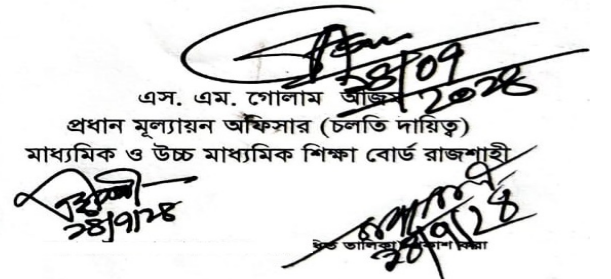 ২৪/০৭
২০২৪
এস. এম. গোলাম আজম
প্রধান মূল্যায়ন অফিসার (চলতি দায়িত্ব)
মাধ্যমিক ও উচ্চ মাধ্যমিক শিক্ষা বোর্ড রাজশাহী
২৪/৭/২৪
২৪/৭/২৪
তালিকা প্রকাশ করা